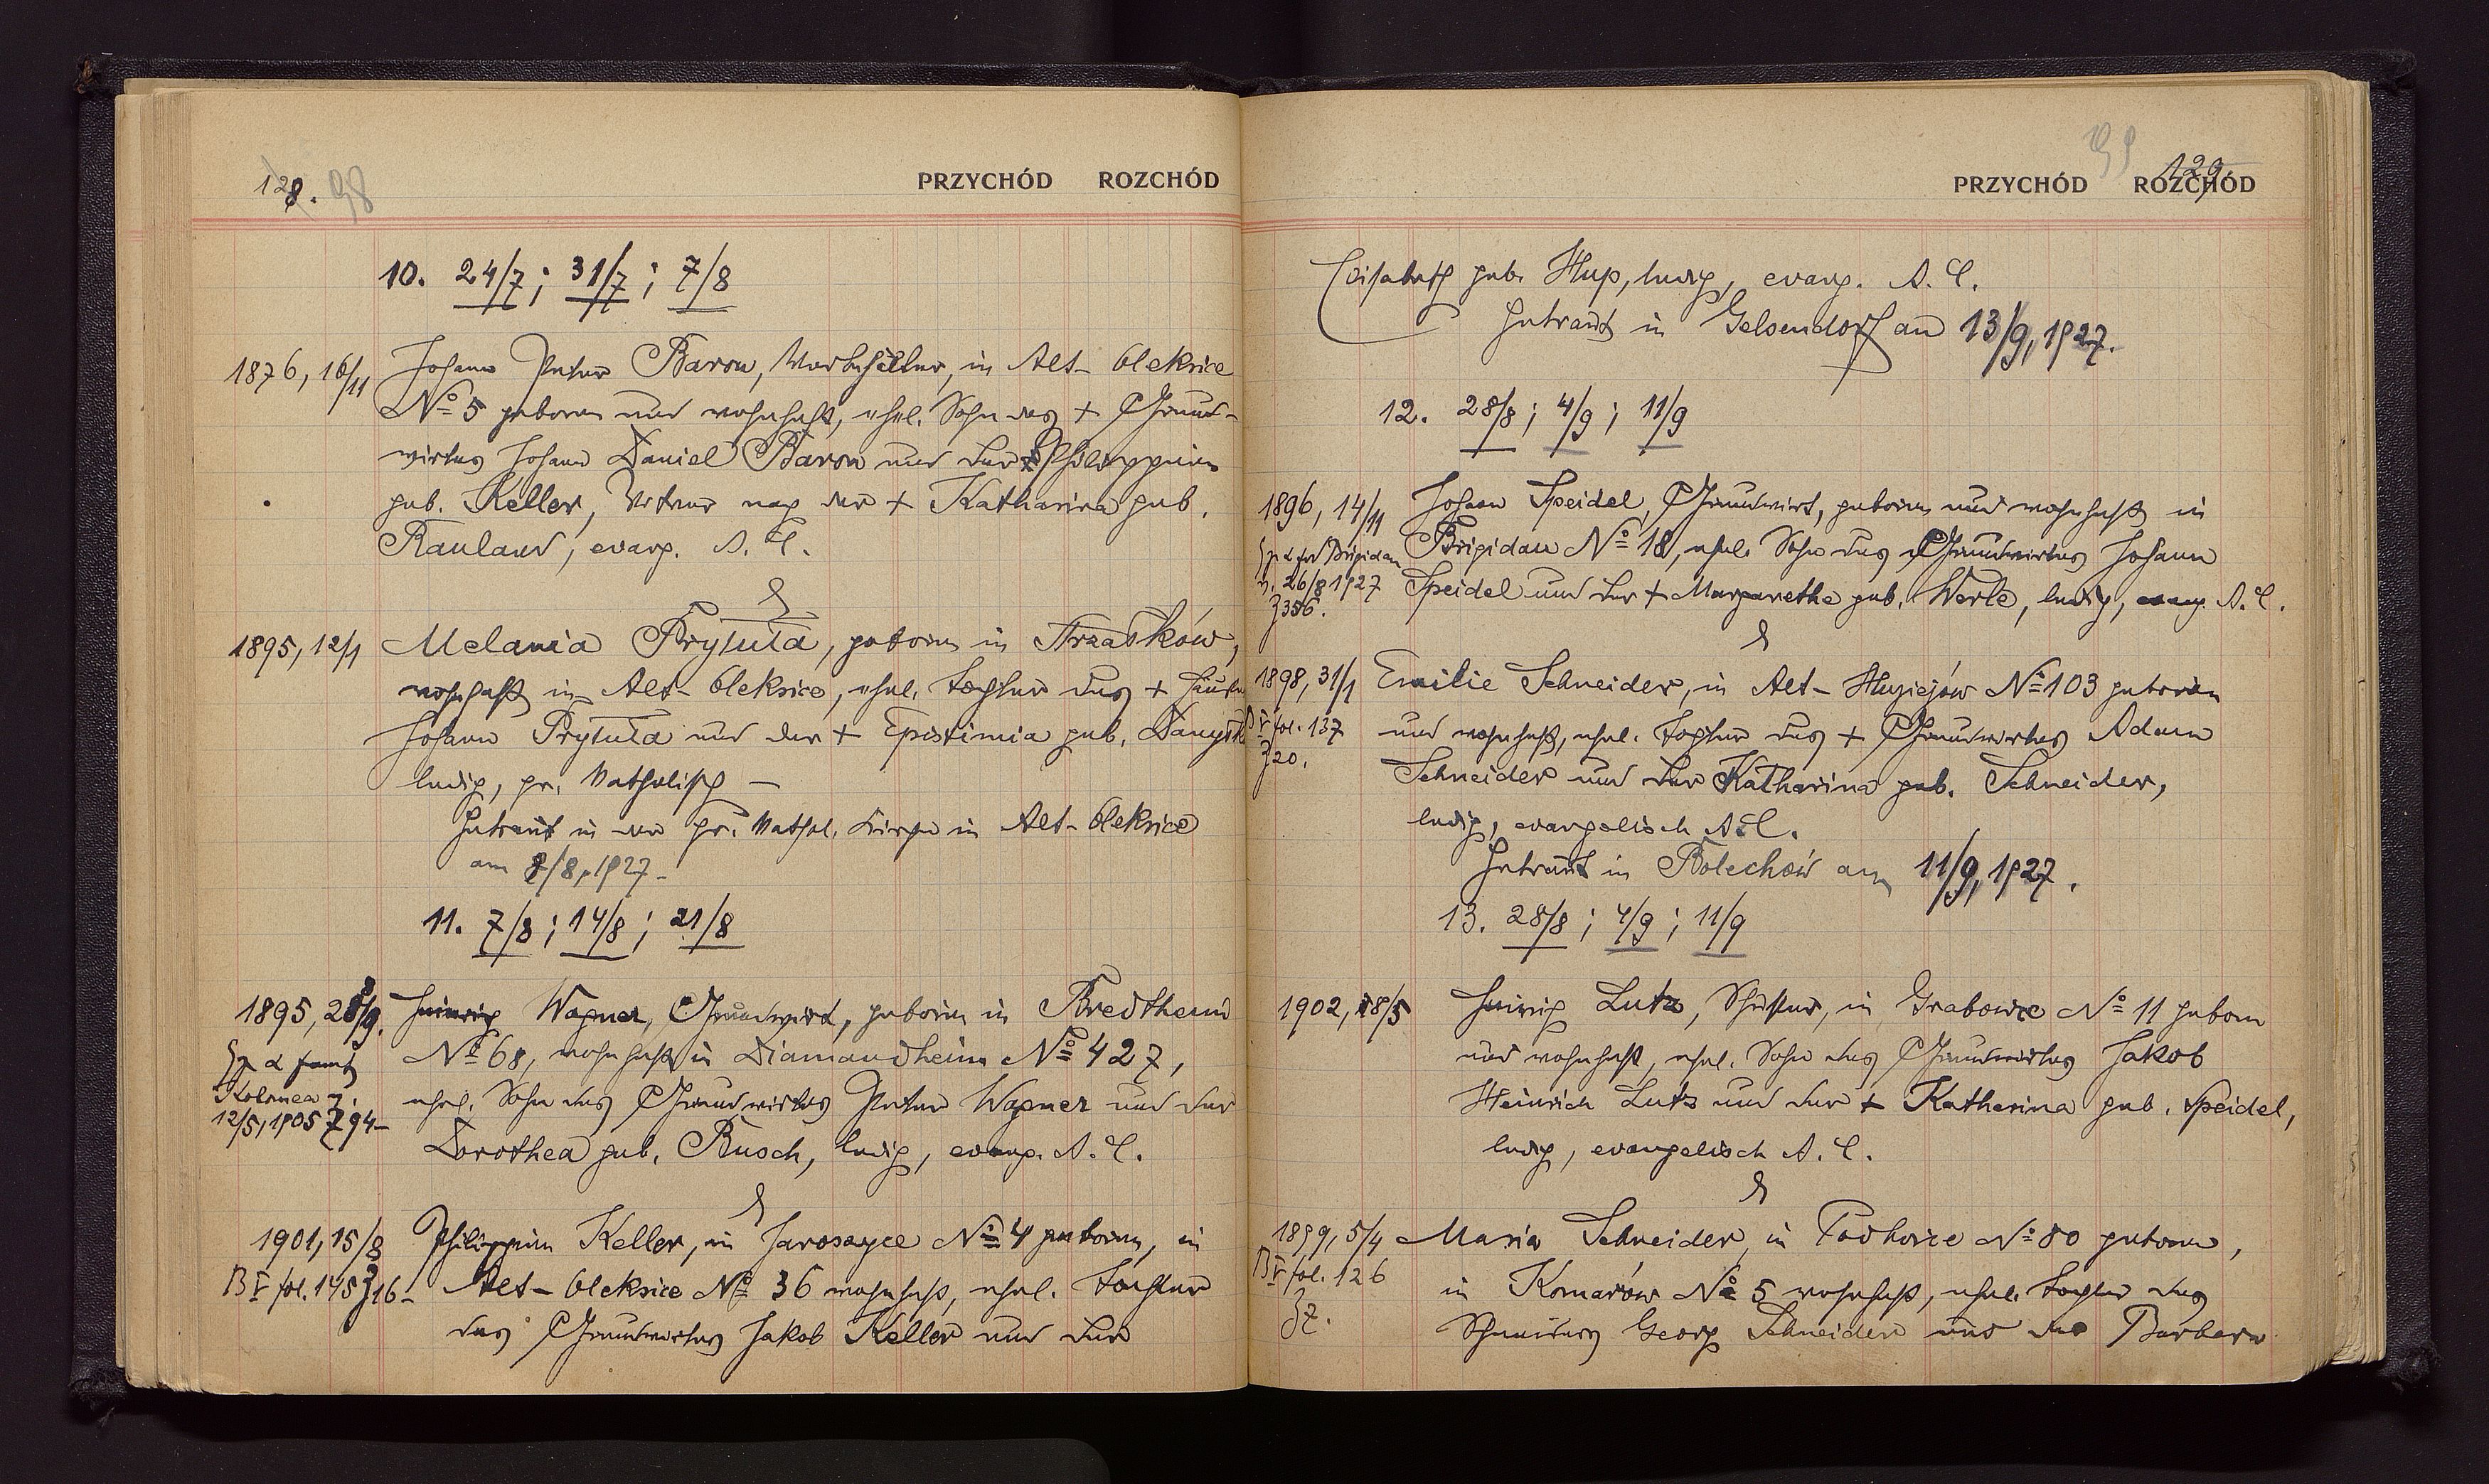 128. 98
PRZYCHÓD ROZCHÓD
10. 24/7; 31/7; 7/8
1876, 16/11 Johann Peter Baron, in Alt-Oleksice
№ 5 geboren und wohnhaft, ehel. Sohn des + Grund-
wirtes Johann Daniel Baron und der + Philippine
geb. Keller, Witwer nach der + Katharina geb.
Rauland, evang. A. C.
&
1895, 12/1 Melania Prytuła, geboren in
wohnhaft in Alt-Oleksice, ehel. Tochter des +
Johann Prytuła und der + Epistimia geb.
ledig, gr. katholisch –
Getraut in der gr. kathol. Kirche in Alt-Oleksice
am 8/8, 1927 –
11. 7/8; 14/8; 21/8
1895, 28/9. Heinrich Wagner, Grundwirt, geboren in Bredtheim
№ 68, wohnhaft in Diamandheim № 427,
Kolomea
12/5, 1905 Z 94 –
ehel. Sohn des Grundwirtes Peter Wagner und der
Dorothea geb. Busch, ledig, evang. A. C.
&
1901, 15/8 Philippine Keller, in Jaroszyce № 4 geboren, in
B V fol. 145 Z 16 – Alt-Oleksice № 36 wohnhaft, ehel. Tochter
des Grundwirtes Jakob Keller und der
99 129
PRZYCHÓD ROZCHÓD
Elisabeth geb. Hup, ledig, evang. A. C.
Getraut in Gelsendorf am 13/9, 1927.
12. 28/8; 4/9; 11/9
1896, 14/11 Johann Speidel, Grundwirt, geboren und wohnhaft in
Brigidau
Brigidau № 18, ehel. Sohn des Grundwirtes Johann
v. 26/8 1927
Z 356.
Speidel und der + Margarethe geb. Werle, ledig, evang. A. C.
&
1898, 31/1 Emilie Schneider, in Alt-Huziejów № 103 geboren
B V fol. 137
Z 20.
und wohnhaft, ehel. Tochter des + Grundwirtes Adam
Schneider und der Katharina geb. Schneider,
ledig, evangelisch A. C.
Getraut in Bolechów am 11/9, 1927.
13. 28/8; 4/9; 11/9
1902, 18/5 Heinrich Lutz, Schuster, in Grabowce № 11 geboren
und wohnhaft, ehel. Sohn des Grundwirtes Jakob
Heinrich Lutz und der + Katharina geb. Speidel,
ledig, evangelisch A. C.
&
1899, 5/4 Maria Schneider, in Podhorce № 80 geboren,
B V fol. 126
Z 7.
in Komarów № 5 wohnhaft, ehel. Tochter des
Schneiders Georg Schneider und der Barbara